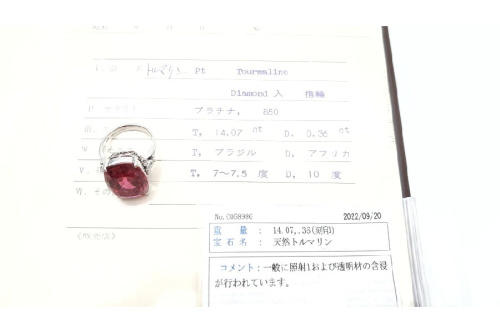 年 月 日
トルマリン Pt Tourmaline
Diamond 入 指輪
プラチナ, 850
T, 14.07 ct D, 0.36 ct
T, ブラジル D, アフリカ
T, 7〜7.5 度 D, 10 度
No.C0G898G 2022/09/20
重 量 : 14.07,.36(刻印)
宝石名 : 天然トルマリン
コメント:一般に照射1および透明材の含浸
が行われています。